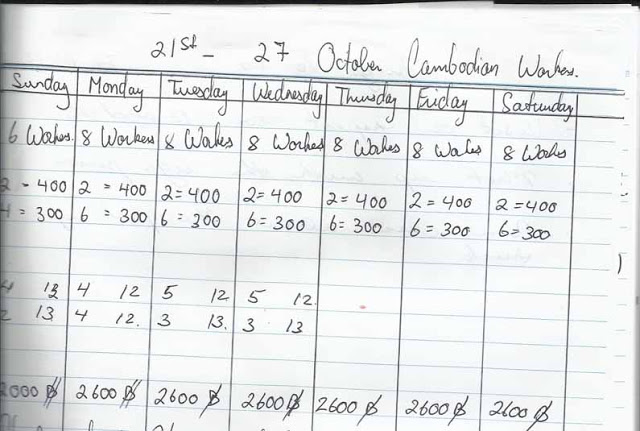 21st - 27 October Cambodian Workes.
Sunday Monday Tuesday Wednesday Thursday Friday Saturday
6 Workes. 8 Workers 8 Wakes 8 Workes 8 Wakes 8 Wakes 8 Workes
2 = 400 2 = 400 2 = 400 2 = 400 2 = 400 2 = 400 2 = 400
4 = 300 6 = 300 6 = 300 6 = 300 6 = 300 6 = 300 6 = 300
4 12 4 12 5 12 5 12.
2 13 4 12. 3 13. 3 13
2000 ฿ 2600 ฿ 2600 ฿ 2600 ฿ 2600 ฿ 2600 ฿ 2600 ฿